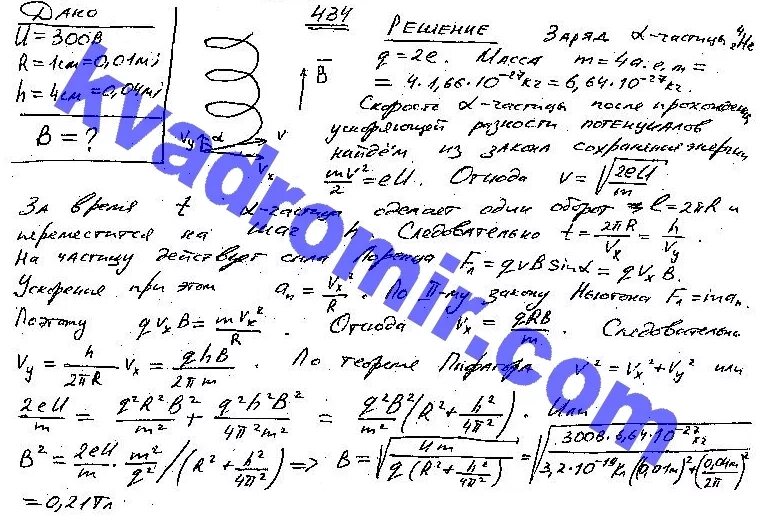 Дано
U = 300В
R = 1см = 0,01м;
h = 4см = 0,04м;
B = ?
434
Решение Заряд α-частицы ⁴₂He
q = 2e. Масса m = 4а.е.м =
= 4·1,66·10⁻²⁷кг = 6,64·10⁻²⁷кг.
Скорость α-частицы после прохождения
ускоряющей разности потенциалов
найдём из закона сохранения энергии
mv²/2 = eU. Отсюда v = √(2eU/m)
B
Vy α V
Vx
За время t α-частица сделает один оборот l = 2πR и
переместится на шаг h. Следовательно t = 2πR/Vx = h/Vy.
На частицу действует сила Лоренца Fл = qvB sinα = qVxB.
Ускорение при этом aп = Vx²/R. По II-му закону Ньютона Fл = maп.
Поэтому qVxB = mVx²/R. Отсюда Vx = qRB/m. Следовательно
Vy = h/2πR Vx = qhB/2πm. По теореме Пифагора V² = Vx² + Vy² или
2eU/m = q²R²B²/m² + q²h²B²/4π²m² = q²B²/m² (R² + h²/4π²). Или
B² = 2eU/m · m²/q² / (R² + h²/4π²) => B = √(Um/q(R² + h²/4π²)) = √(300В·6,64·10⁻²⁷кг/3,2·10⁻¹⁹Кл(0,01м)² + (0,04м/2π)²)
= 0,21Тл
kvadromir.com